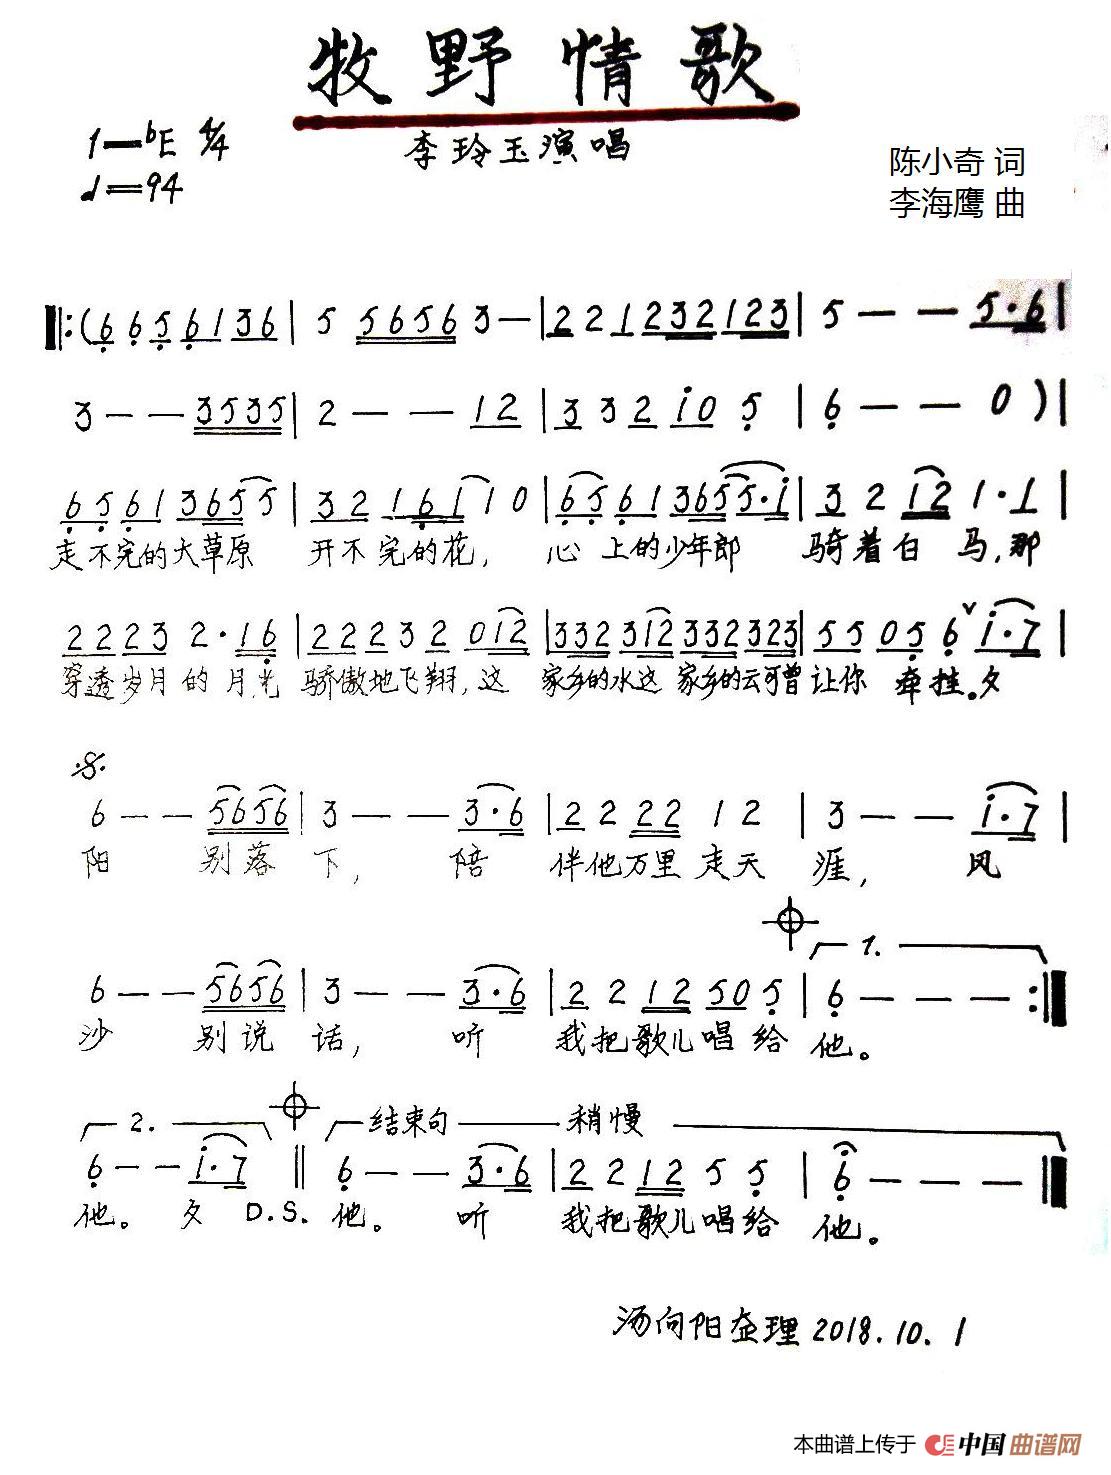 牧野情歌
1=bE 4/4
李玲玉演唱
♩=94
陈小奇 词
李海鹰 曲
‖:(6 6 5 6 1 3 6 | 5 5656 3 — | 2 2 1 2 3 2 1 2 3 | 5 — — 5·6 |
3 — — 3535 | 2 — — 1 2 | 3 3 2 i 0 5 | 6 — — 0 ) |
6 5 6 1 3 6 5 5 | 3 2 1 6 1 1 0 | 6 5 6 1 3 6 5 5·i | 3 2 1 2 1·1
走不完的大草原 开不完的花, 心上的少年郎 骑着白马,那
2 2 2 3 2·1 6 | 2 2 2 3 2 0 1 2 | 3 3 2 3 1 2 3 3 2 3 2 3 | 5 5 0 5 6 ∨ i·7 |
穿透岁月的月光 骄傲地飞翔,这 家乡的水这家乡的云可曾让你牵挂。夕
𝄋
6 — — 5656 | 3 — — 3·6 | 2 2 2 2 1 2 | 3 — — i·7 |
阳 别落下, 陪伴他万里走天涯, 风
1.
6 — — 5656 | 3 — — 3·6 | 2 2 1 2 5 0 5 | 6 — — — :‖
沙 别说话, 听 我把歌儿唱给他。
2. 结束句 稍慢
6 — — i·7 ‖ 6 — — 3·6 | 2 2 1 2 5 5 | 6 — — — ‖
他。 夕 D.S. 他。 听 我把歌儿唱给他。
汤向阳整理 2018.10.1
本曲谱上传于 中国曲谱网